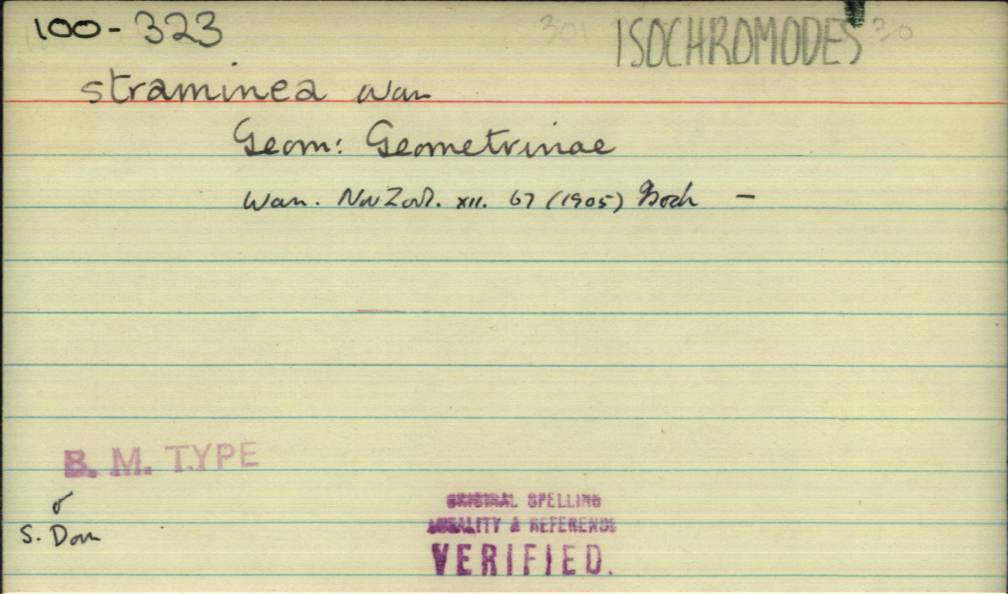 100-323 ISOCHROMODES 30
straminea Warr
Geom: Geometrinae
Warr. Nov Zool. XII. 67 (1905) –
B. M. TYPE
♂
S. Dom
ORIGINAL SPELLING
LOCALITY & REFERENCE
VERIFIED.